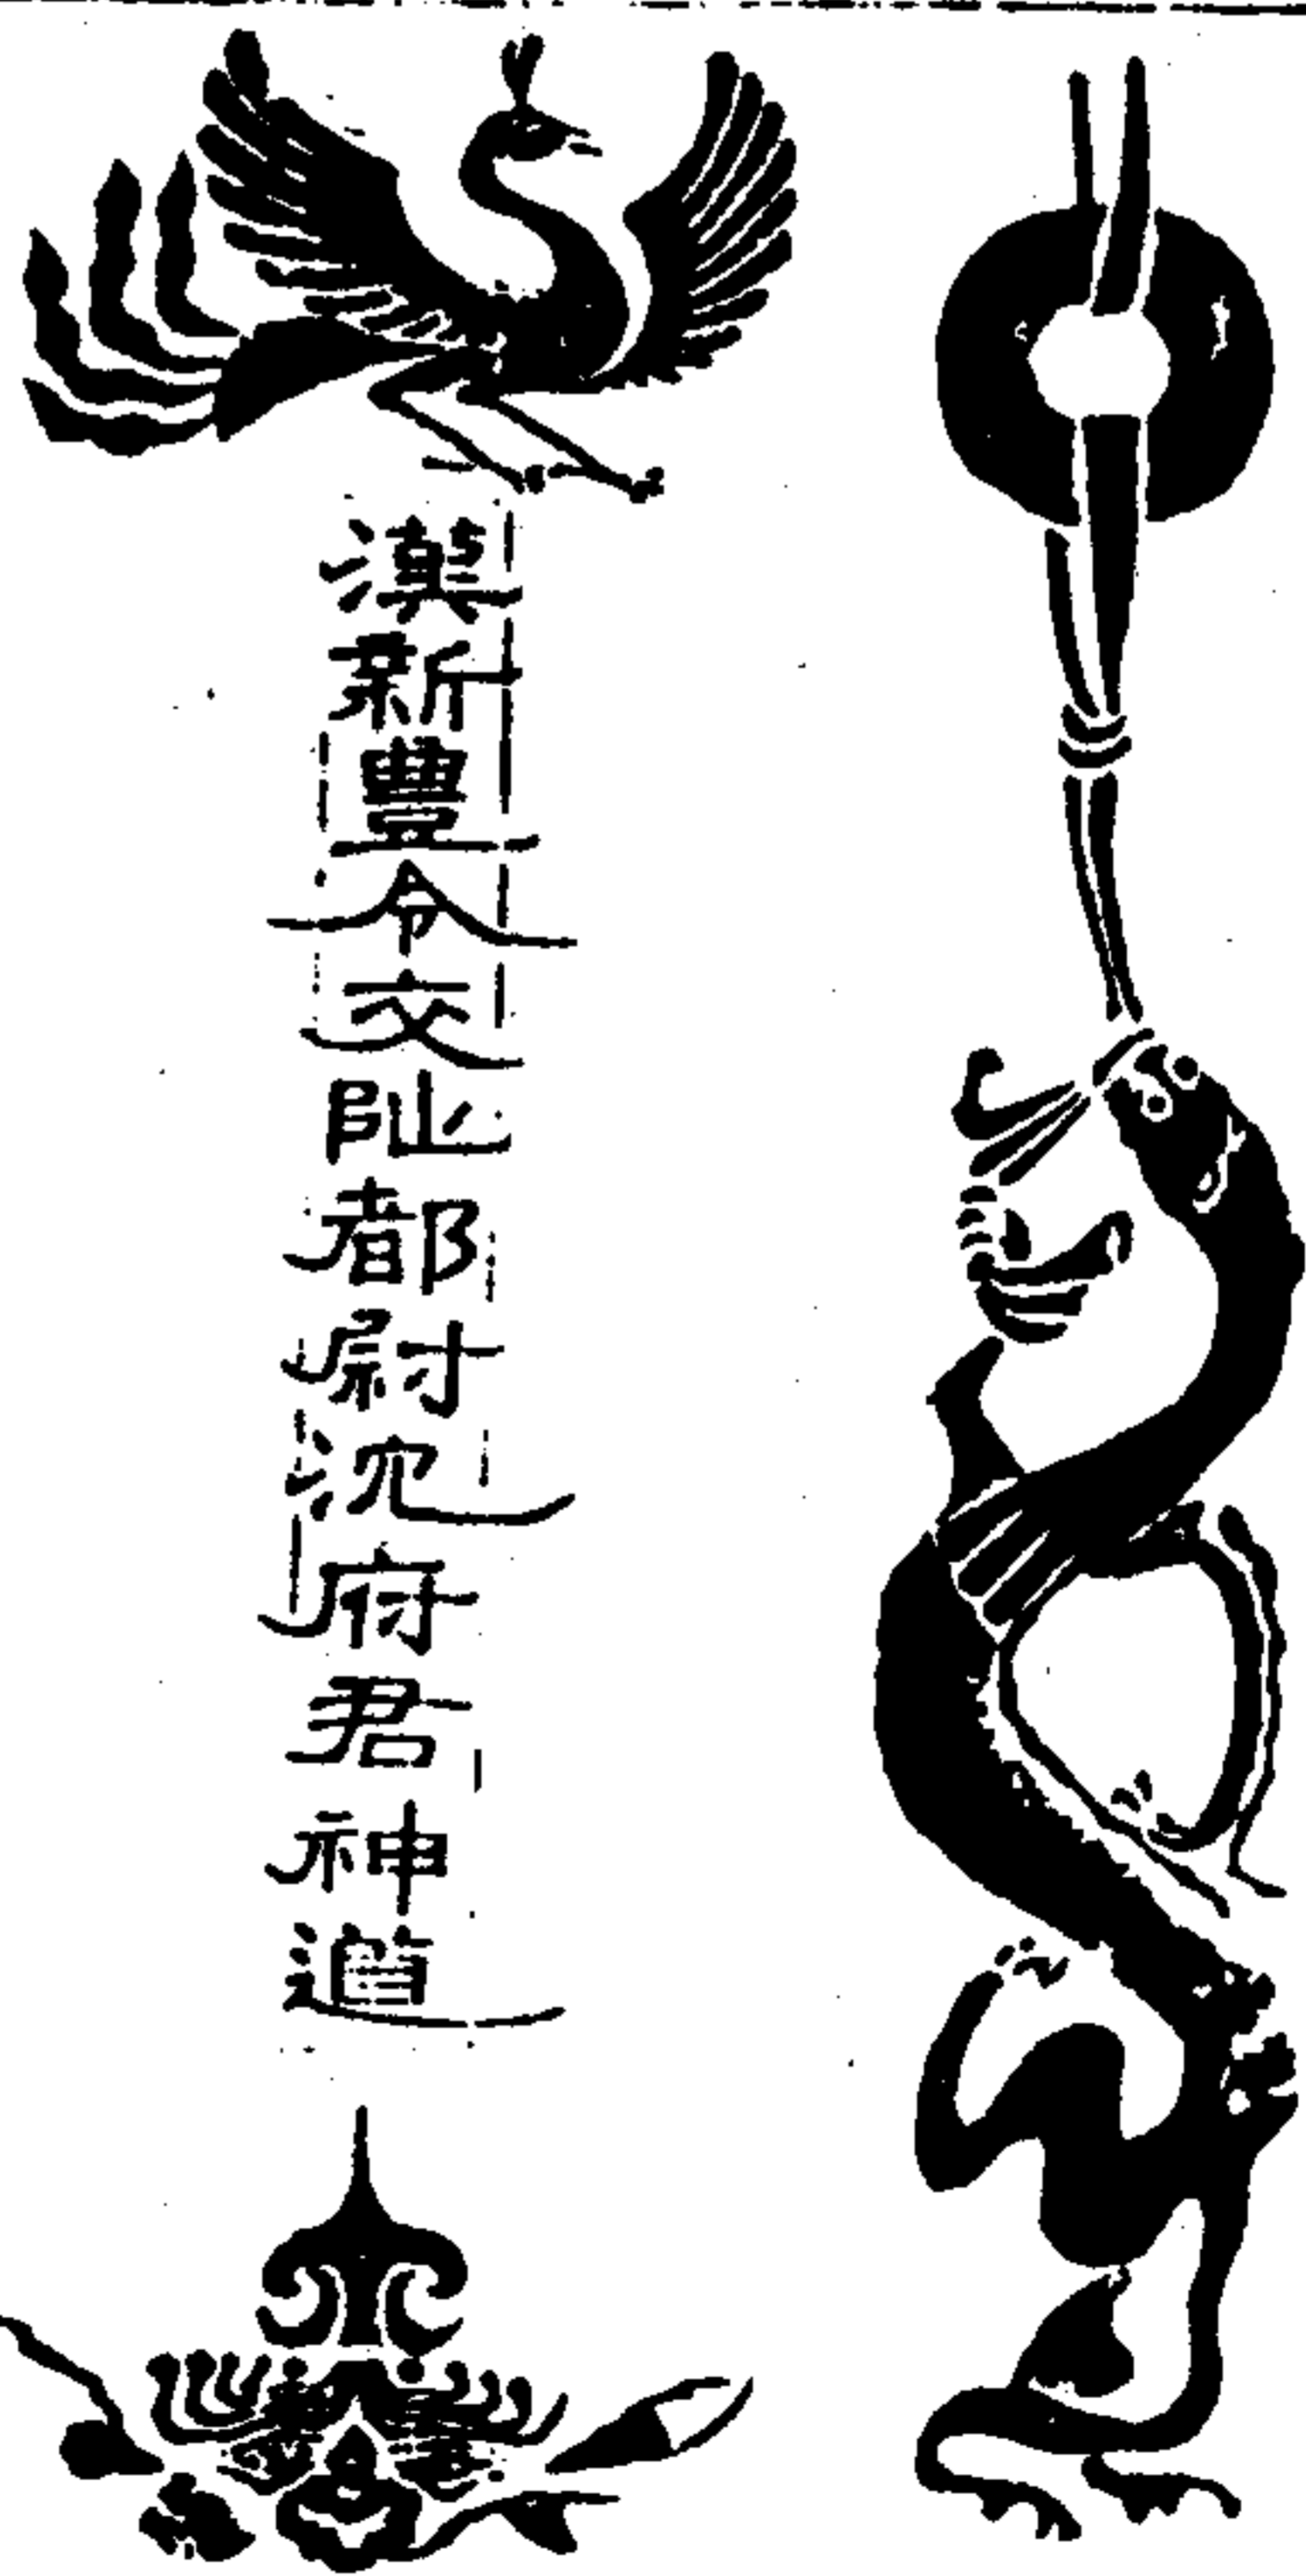 漢新豐令交阯都尉沈府君神道